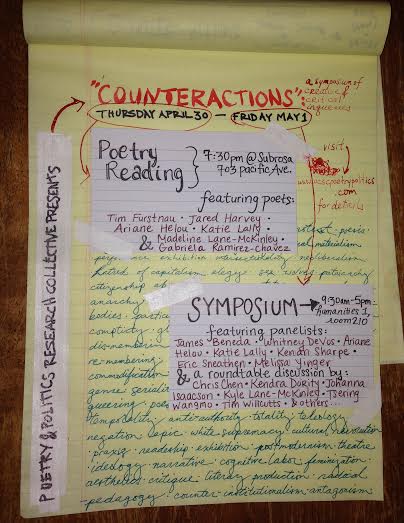 "COUNTERACTIONS":
a symposium of
creative &
critical
inquiries
THURSDAY APRIL 30 — FRIDAY MAY 1
POETRY & POLITICS RESEARCH COLLECTIVE PRESENTS
Poetry
Reading
7:30pm @ Subrosa
703 pacific Ave.
featuring poets:
Tim Furstnau · Jared Harvey ·
Ariane Helou · Katie Lally ·
& Madeline Lane-McKinley ·
Gabriela Ramirez-Chavez
visit
ucscpoetrypolitics
.com
for details
materialism
performance exhibition neoliberalism
hatred of capitalism elegy patriarchy
citizenship
anarchy
bodies
complicity
dismembering
re-membering
commodification
genre
queering
SYMPOSIUM → 9:30am-5pm:
humanities 1,
room 210
featuring panelists:
James Beneda · Whitney DeVos · Ariane
Helou · Katie Lally · Kenan Sharpe ·
Eric Sneathen · Melissa Yinger
& a roundtable discussion by:
Chris Chen · Kendra Dority · Johanna
Isaacson · Kyle Lane-McKinley · Tsering
Wangmo · Tim Willcutts & others...
temporality · anti-authority · totality · teleology
negation · topic · white supremacy · cultural
praxis · readership · exhibition · postmodernism · theatre
ideology · narrative · cognitive labor · feminization
aesthetics · critique · literary production · radical
pedagogy · counter-institutionalism · antagonism